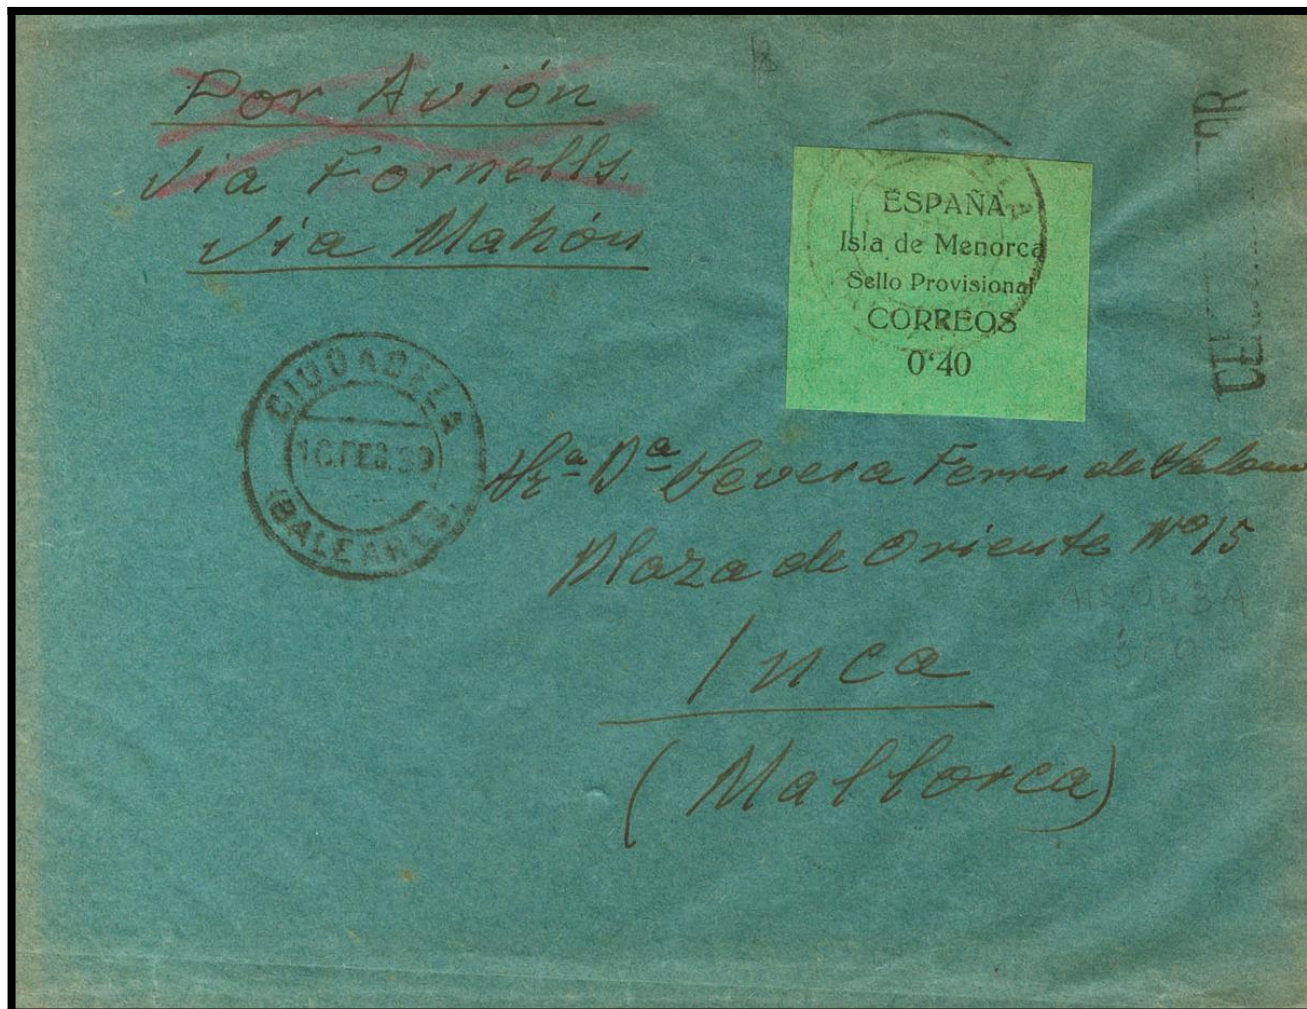 Por Avión
Via Fornells.
Via Mahón
ESPAÑA
Isla de Menorca
Sello Provisional
CORREOS
0'40
CIUDADELA
18.FEB.39
(BALEARES)
Sra Da Severa Ferrer de
Plaza de Oriente No 15
Inca
(Mallorca)